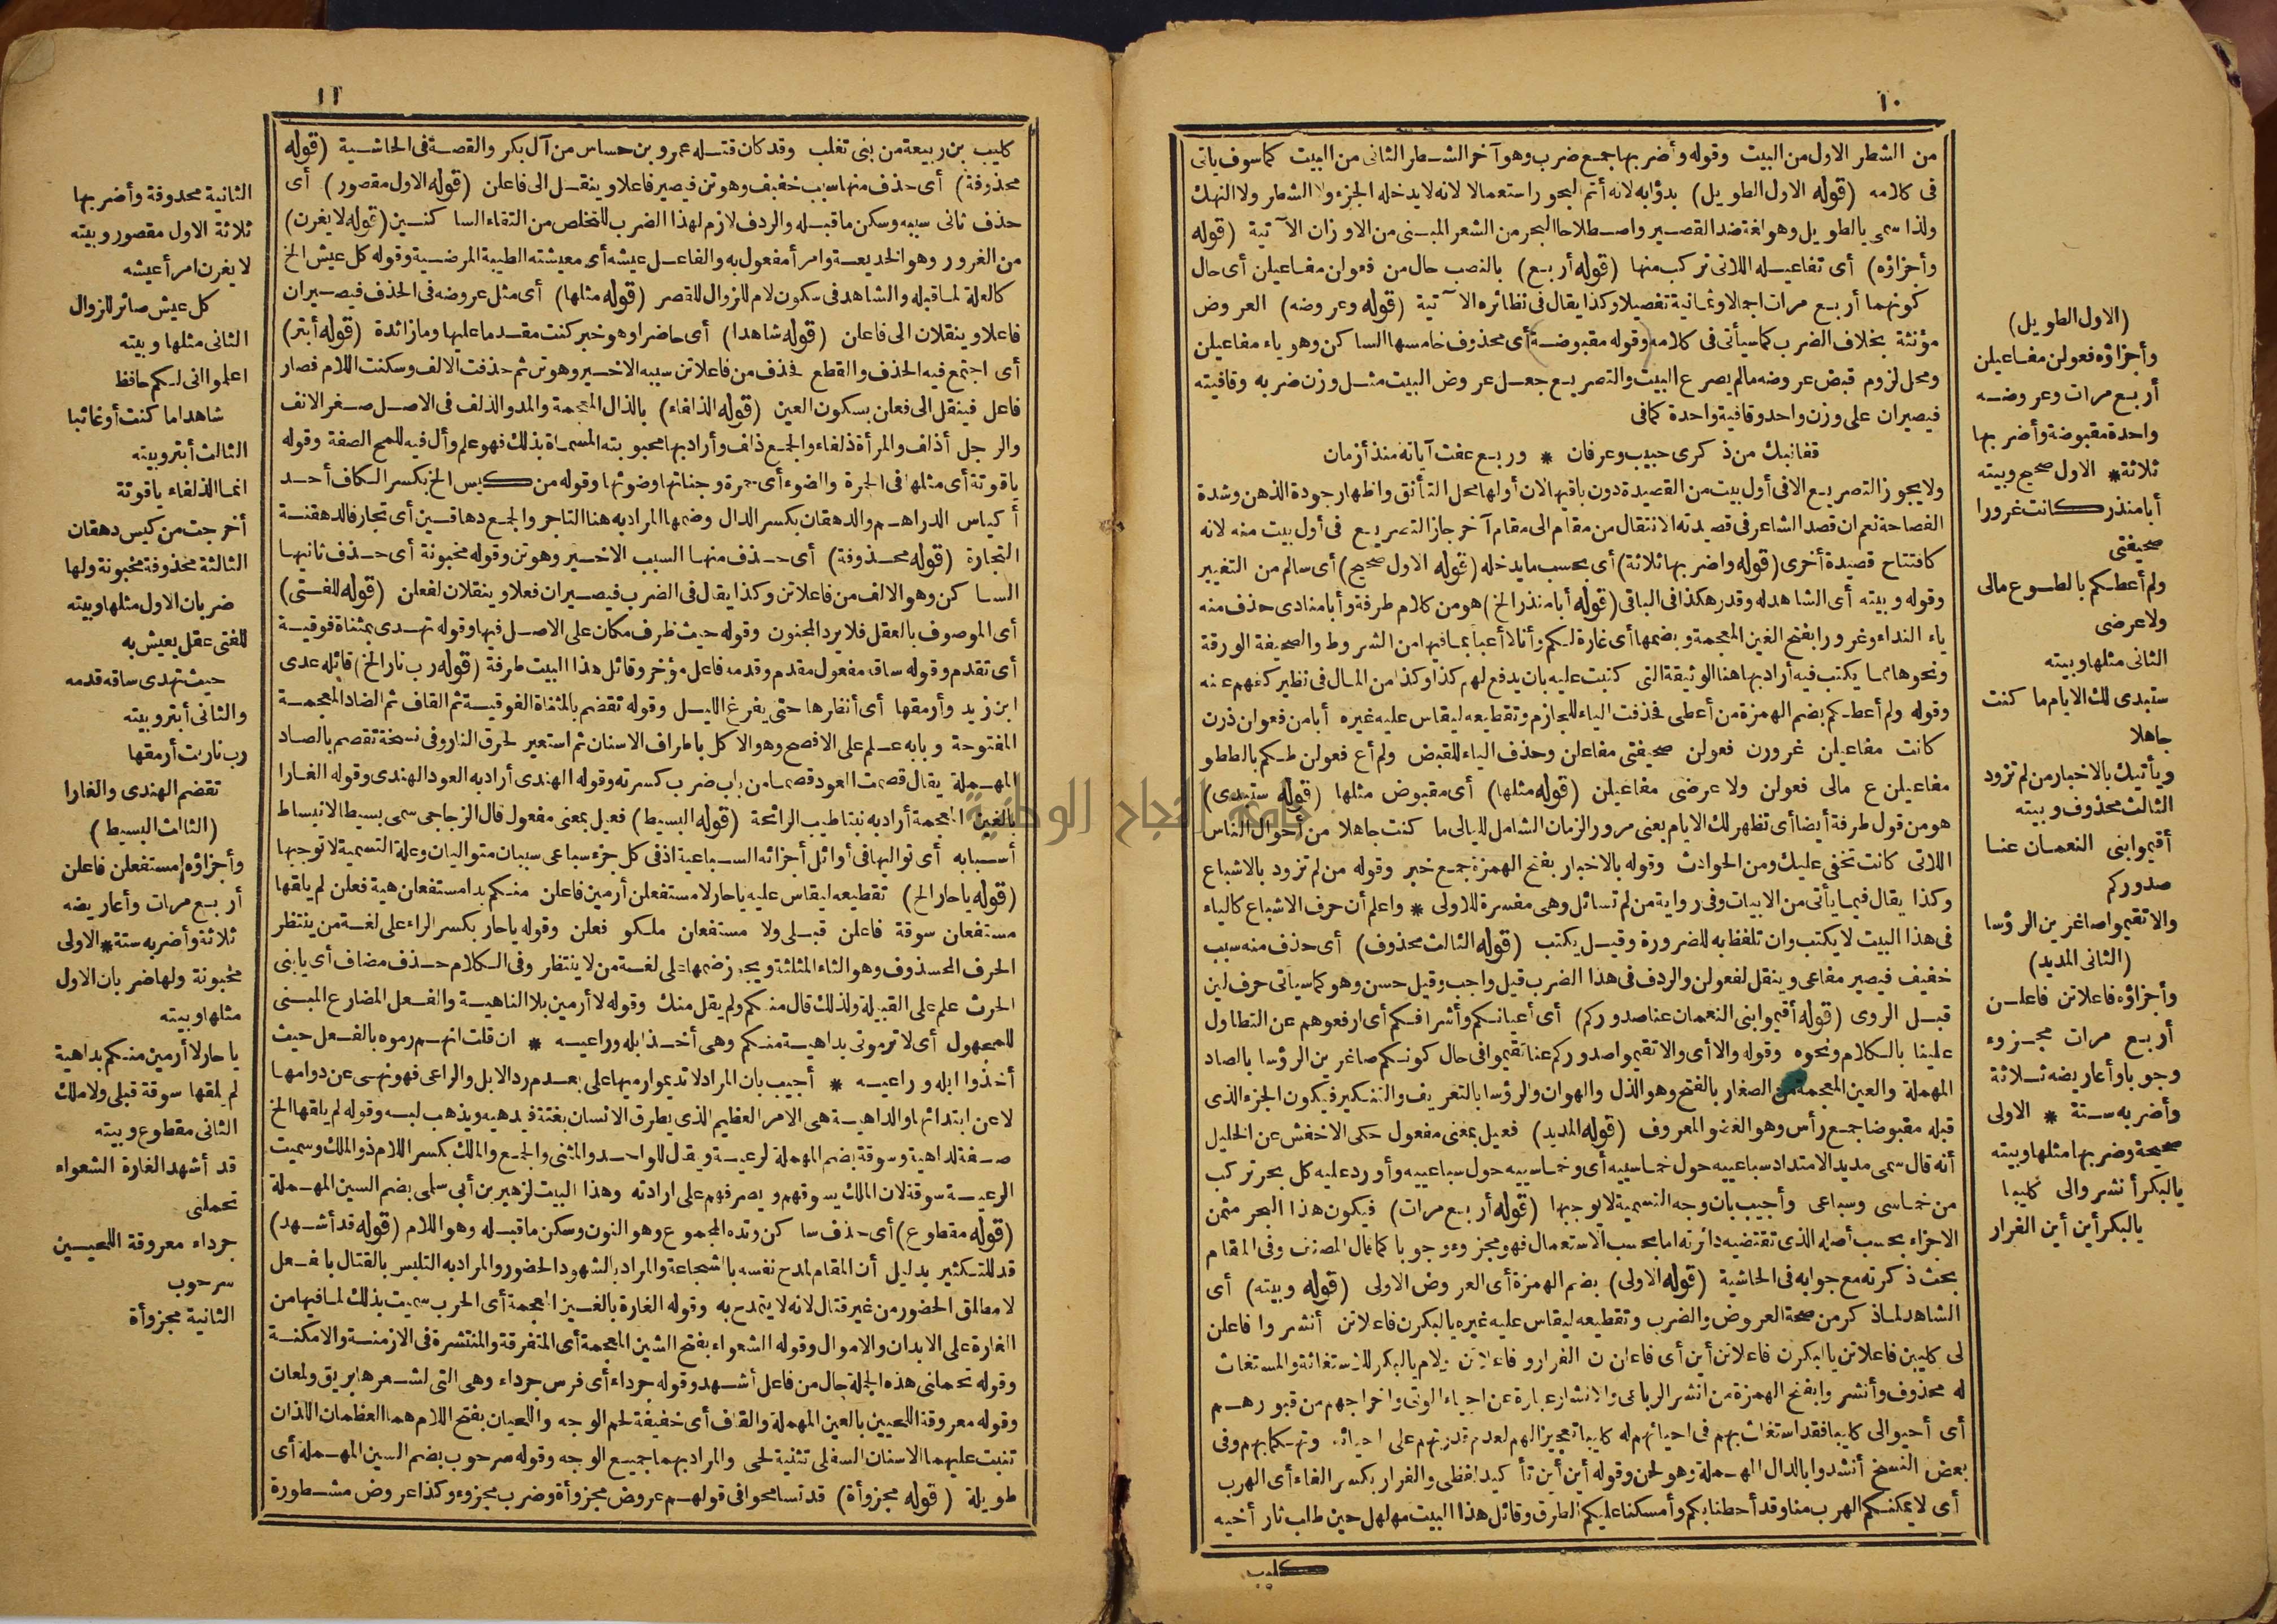 ١٠
من الشطر الاول من البيت وقوله وأضربها جمع ضرب وهو آخر الشطر الثانى من البيت كما سوف يأتى
فى كلامه (قوله الاول الطويل) بدؤا به لانه أتم البحور استعمالا لانه لا يدخله الجزء ولا الشطر ولا النهك
ولذا سمى بالطويل وهو لغة ضد القصير واصطلاحا البحر من الشعر المبنى من الاوزان الآتية (قوله
وأجزاؤه) أى تفاعيله اللاتى تركب منها (قوله أربع) بالنصب حال من فعولن مفاعيلن أى حال
كونهما أربع مرات اجمالا وثمانية تفصيلا وكذا يقال فى نظائره الآتية (قوله وعروضه) العروض
مؤنثة بخلاف الضرب كما سيأتى فى كلامه (وقوله مقبوضة) أى محذوف خامسها الساكن وهو ياء مفاعيلن
ومحل لزوم قبض عروضه مالم يصرع البيت والتصريع جعل عروض البيت مثل وزن ضربه وقافيته
فيصيران على وزن واحد وقافية واحدة كما فى
قفا نبك من ذكرى حبيب وعرفان * وربع عفت آياته منذ أزمان
ولا يجوز التصريع الا فى أول بيت من القصيدة دون باقيها لان أولها محل التأنق واظهار جودة الذهن وشدة
الفصاحة نعم ان قصد الشاعر فى قصيدته الانتقال من مقام الى مقام آخر جاز التصريع فى أول بيت منه لانه
كافتتاح قصيدة أخرى (قوله واضربها ثلاثة) أى بحسب ما يدخله (قوله الاول صحيح) أى سالم من التغيير
وقوله وبيته أى الشاهد له وقدر هكذا فى الباقى (قوله أبا منذر الخ) هو من كلام طرفة وأبا منادى حذف منه
ياء النداء وغرورا بفتح الغين المعجمة وبضمها أى غارة لكم وأنا لا أعبأ بما فيها من الشروط والصحيفة الورقة
ونحوها مما يكتب فيه أراد بها هنا الوثيقة التى كتبت عليه بان يدفع لهم كذا وكذا من المال فى نظير كفهم عنه
وقوله ولم أعطكم بضم الهمزة من أعطى فحذفت الياء للجازم وتقطيعه ليقاس عليه غيره أبا من فعولن ذرن
كانت مفاعيلن غرورن فعولن صحيفتى مفاعلن وحذف الياء للقبض ولم أع فعولن طكم بالططو
مفاعيلن ع مالى فعولن ولا عرضى مفاعيلن (قوله مثلها) أى مقبوض مثلها (قوله ستبدى)
هو من قول طرفة أيضا أى تظهر لك الايام يعنى مرور الزمان الشامل لليالى ما كنت جاهلا من أحوال الناس
اللاتى كانت تخفى عليك ومن الحوادث وقوله بالاخبار بفتح الهمزة جمع خبر وقوله من لم تزود بالاشباع
وكذا يقال فيما يأتى من الابيات وفى رواية من لم تسائل وهى مفسرة للاولى * واعلم أن حرف الاشباع كالياء
فى هذا البيت لا يكتب وان تلفظ به للضرورة وقيل يكتب (قوله الثالث محذوف) أى حذف منه سبب
خفيف فيصير مفاعى وينقل لفعولن والردف فى هذا الضرب قيل واجب وقيل حسن وهو كما سيأتى حرف لين
قبل الروى (قوله أقيموا بنى النعمان عنا صدوركم) أى أعيانكم وأشرافكم أى ارفعوهم عن التطاول
علينا بالكلام ونحوه وقوله والا أى والا تقيموا صدوركم عنا تقيموا فى حال كونكم صاغرين الرؤسا بالصاد
المهملة والغين المعجمة من الصغار بالفتح وهو الذل والهوان والرؤسا بالتعريف والتنكير فيكون الجزء الذى
قبله مقبوضا جمع رأس وهو العضو المعروف (قوله المديد) فعيل بمعنى مفعول حكى الاخفش عن الخليل
أنه قال سمى مديد الامتداد سباعييه حول خماسييه أى وخماسييه حول سباعييه وأورد عليه كل بحر تركب
من خماسى وسباعى وأجيب بان وجه التسمية لا يوجبها (قوله أربع مرات) فيكون هذا البحر مثمن
الاجزاء بحسب أصله الذى تقتضيه دائرته اما بحسب الاستعمال فهو مجزوء وجوبا كما قال المصنف وفى المقام
بحث ذكرته مع جوابه فى الحاشية (قوله الاولى) بضم الهمزة أى العروض الاولى (قوله وبيته) أى
الشاهد لما ذكر من صحة العروض والضرب وتقطيعه ليقاس عليه غيره يالبكرن فاعلاتن أنشروا فاعلن
لى كليبن فاعلاتن يالبكرن فاعلاتن أين أى فاعلن ن الفرارو فاعلاتن ولام يالبكر للاستغاثة والمستغاث
له محذوف وأنشروا بفتح الهمزة من انشر الرباعى والانشار عبارة عن احياء الموتى واخراجهم من قبورهم
أى أحيوا لى كليبا فقد استغاث بهم فى احيائهم له كليبا تعجيزا لهم لعدم قدرتهم على احيائه وتهكما بهم وفى
بعض النسخ أنشدوا بالدال المهملة وهو لحن وقوله أين أين تأكيد لفظى والفرار بكسر الفاء أى الهرب
أى لا يمكنكم الهرب منا وقد أحطنا بكم وأمسكنا عليكم الطرق وقائل هذا البيت مهلهل حين طلب ثار أخيه
كليب
(الاول الطويل)
وأجزاؤه فعولن مفاعيلن
أربع مرات وعروضه
واحدة مقبوضة وأضربها
ثلاثة * الاول صحيح وبيته
أبا منذر كانت غرورا
صحيفتى
ولم أعطكم بالطوع مالى
ولا عرضى
الثانى مثلها وبيته
ستبدى لك الايام ما كنت
جاهلا
ويأتيك بالاخبار من لم تزود
الثالث محذوف وبيته
أقيموا بنى النعمان عنا
صدوركم
والا تقيموا صاغرين الرؤسا
(الثانى المديد)
وأجزاؤه فاعلاتن فاعلن
أربع مرات مجزوء
وجوبا وأعاريضه ثلاثة
وأضربه ستة * الاولى
صحيحة وضربها مثلها وبيته
يالبكر أنشروا لى كليبا
يالبكر أين أين الفرار
١١
كليب بن ربيعة من بنى تغلب وقد كان قتله عمرو بن حساس من آل بكر والقصة فى الحاشية (قوله
محذوفة) أى حذف منها سبب خفيف وهو تن فيصير فاعلا وينقل الى فاعلن (قوله الاول مقصور) أى
حذف ثانى سببه وسكن ما قبله والردف لازم لهذا الضرب للتخلص من التقاء الساكنين (قوله لا يغرن)
من الغرور وهو الخديعة وامرأ مفعول به والفاعل عيشه أى معيشته الطيبة المرضية وقوله كل عيش الخ
كالعلة لما قبله والشاهد فى سكون لام للزوال للقصر (قوله مثلها) أى مثل عروضه فى الحذف فيصيران
فاعلا وينقلان الى فاعلن (قوله شاهدا) أى حاضرا وهو خبر كنت مقدما عليها وما زائدة (قوله أبتر)
أى اجتمع فيه الحذف والقطع فحذف من فاعلاتن سببه الاخير وهو تن ثم حذفت الالف وسكنت اللام فصار
فاعل فينقل الى فعلن بسكون العين (قوله الذلفاء) بالذال المعجمة والمد والذلف فى الاصل صغر الانف
والرجل أذلف والمرأة ذلفاء والجمع ذلف وأراد بها محبوبته المسماة بذلك فهو علم وأل فيه للمح الصفة وقوله
ياقوتة أى مثلها فى الحمرة والضوء أى حمرة وجناتها وضوئها وقوله من كيس الخ بكسر الكاف أحد
أكياس الدراهم والدهقان بكسر الدال وضمها المراد به هنا التاجر والجمع دهاقين أى تجار فالدهقنة
التجارة (قوله محذوفة) أى حذف منها السبب الاخير وهو تن وقوله مخبونة أى حذف ثانيها
الساكن وهو الالف من فاعلاتن وكذا يقال فى الضرب فيصيران فعلا وينقلان لفعلن (قوله للفتى)
أى الموصوف بالعقل فلا يرد المجنون وقوله حيث ظرف مكان على الاصل فيها وقوله تهدى بمثناة فوقية
أى تقدم وقوله ساقه مفعول مقدم وقدمه فاعل مؤخر وقائل هذا البيت طرفة (قوله رب نار الخ) قائله عدى
ابن زيد وأرمقها أى أنظرها حتى يفرغ الليل وقوله تقضم بالمثناة الفوقية ثم القاف ثم الضاد المعجمة
المفتوحة وبابه علم على الافصح وهو الاكل باطراف الاسنان ثم استعير لحرق النار وفى نسخة تقصم بالصاد
المهملة يقال قصمت العود قصما من باب ضرب كسرته وقوله الهندى أراد به العود الهندى وقوله الغارا
بالغين المعجمة أراد به نبتا طيب الرائحة (قوله البسيط) فعيل بمعنى مفعول قال الزجاجى سمى بسيطا لانبساط
أسبابه أى تواليها فى أوائل أجزائه السباعية اذ فى كل جزء سباعى سببان متواليان وعلة التسمية لا توجبها
(قوله يا حار الخ) تقطيعه ليقاس عليه يا حار لا مستفعلن أرمين فاعلن منكم بدا مستفعلن هية فعلن لم يلقها
مستفعلن سوقة فاعلن قبلى ولا مستفعلن ملكو فعلن وقوله يا حار بكسر الراء على لغة من ينتظر
الحرف المحذوف وهو الثاء المثلثة ويجوز ضمها على لغة من لا ينتظر وفى الكلام حذف مضاف أى يا بنى
الحرث علم على القبيلة ولذلك قال منكم ولم يقل منك وقوله لا أرمين بلا الناهية والفعل المضارع المبنى
للمجهول أى لا ترمونى بداهية منكم وهى أخذ ابله وراعيه * ان قلت انهم رموه بالفعل حيث
أخذوا ابله وراعيه * أجيب بان المراد لا تديموا رميها على بعدم رد الابل والراعى فهو نهى عن دوامها
لا عن ابتدائها والداهية هى الامر العظيم الذى يطرق الانسان بغتة فيدهيه ويذهب لبه وقوله لم يلقها الخ
صفة لداهية وسوقة بضم المهملة لرعية ويقال للواحد والمثنى والجمع والملك بكسر اللام ذو الملك وسميت
الرعية سوقة لان الملك يسوقهم ويصرفهم على ارادته وهذا البيت لزهير بن أبى سلمى بضم السين المهملة
(قوله مقطوع) أى حذف ساكن وتده المجموع وهو النون وسكن ما قبله وهو اللام (قوله قد أشهد)
قد للتكثير بدليل أن المقام لمدح نفسه بالشجاعة والمراد بالشهود الحضور والمراد به التلبس بالقتال بالفعل
لا مطلق الحضور من غير قتال لانه لا يتمدح به وقوله الغارة بالغين المعجمة أى الحرب سميت بذلك لما فيها من
الغارة على الابدان والاموال وقوله الشعواء بفتح الشين المعجمة أى المتفرقة والمنتشرة فى الازمنة والامكنة
وقوله تحملنى هذه الجملة حال من فاعل أشهد وقوله جرداء أى فرس جرداء وهى التى لشعرها بريق ولمعان
وقوله معروقة اللحيين بالعين المهملة والقاف أى خفيفة لحم الوجه واللحيان بفتح اللام هما العظمان اللذان
تنبت عليهما الاسنان السفلى تثنية لحى والمراد بهما جميع الوجه وقوله سرحوب بضم السين المهملة أى
طويلة (قوله مجزوأة) قد تسامحوا فى قولهم عروض مجزوأة وضرب مجزوء وكذا عروض مشطورة
الثانية محذوفة وأضربها
ثلاثة الاول مقصور وبيته
لا يغرن امرأ عيشه
كل عيش صائر للزوال
الثانى مثلها وبيته
اعلموا انى لكم حافظ
شاهدا ما كنت أو غائبا
الثالث أبتر وبيته
انما الذلفاء ياقوتة
أخرجت من كيس دهقان
الثالثة محذوفة مخبونة ولها
ضربان الاول مثلها وبيته
للفتى عقل يعيش به
حيث تهدى ساقه قدمه
والثانى أبتر وبيته
رب نار بت أرمقها
تقضم الهندى والغارا
(الثالث البسيط)
وأجزاؤه مستفعلن فاعلن
أربع مرات وأعاريضه
ثلاثة وأضربه ستة * الاولى
مخبونة ولها ضربان الاول
مثلها وبيته
يا حار لا أرمين منكم بداهية
لم يلقها سوقة قبلى ولا ملك
الثانى مقطوع وبيته
قد أشهد الغارة الشعواء
تحملنى
جرداء معروقة اللحيين
سرحوب
الثانية مجزوأة
جامعة النجاح الوطنية